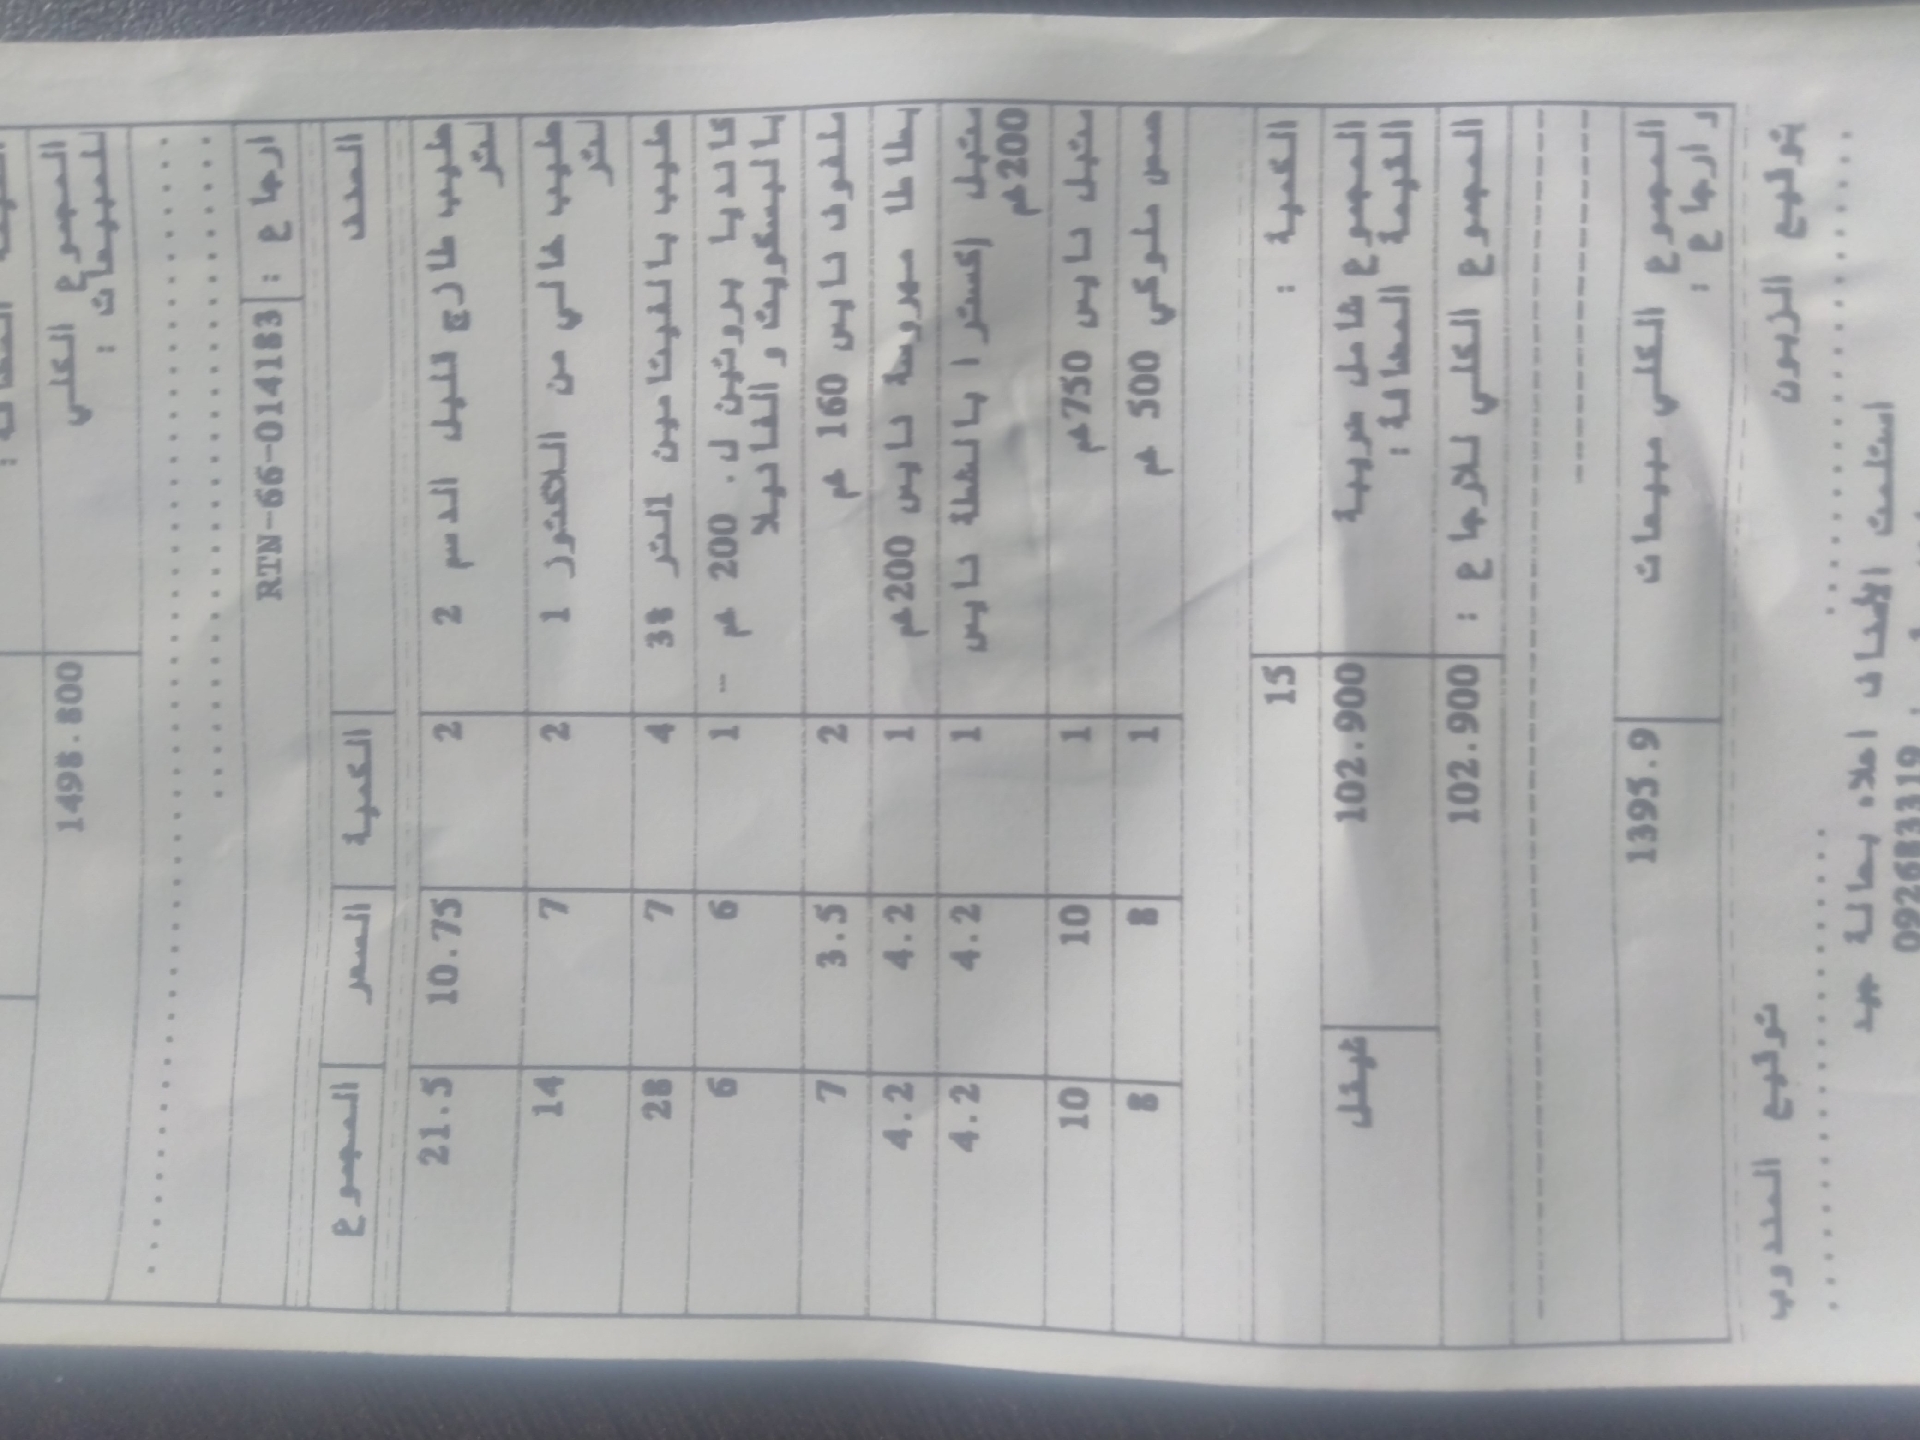 المجموع الكلي
للمبيعات :
1498.800
ارجاع : RTN-66-014183
الصنف الكمية السعر المجموع
حليب طازج قليل الدسم 2 لتر 2 10.75 21.5
حليب خالي من اللاكتوز 1 لتر 2 7 14
حليب بالفيتامين التر 38 4 7 28
كانديا بروتين ل. 200 غم - بالبسكويت و الفانيلا 1 6 6
ملفوف نايس 160 غم 2 3.5 7
بطاطا مهروسة نايس 200غم 1 4.2 4.2
متبل إكسترا بالشطة نايس 200غم 1 4.2 4.2
متبل نايس 750غم 1 10 10
حمص ملوكي 500 غم 1 8 8
الكمية : 15
المجموع شامل ضريبة القيمة المضافة : 102.900 شيقل
المجموع الكلي للارجاع : 102.900
المجموع الكلي مبيعات و ارجاع : 1395.9
توقيع الزبون توقيع المندوب
استلمت الأصناف اعلاه بحالة جيد
092683319